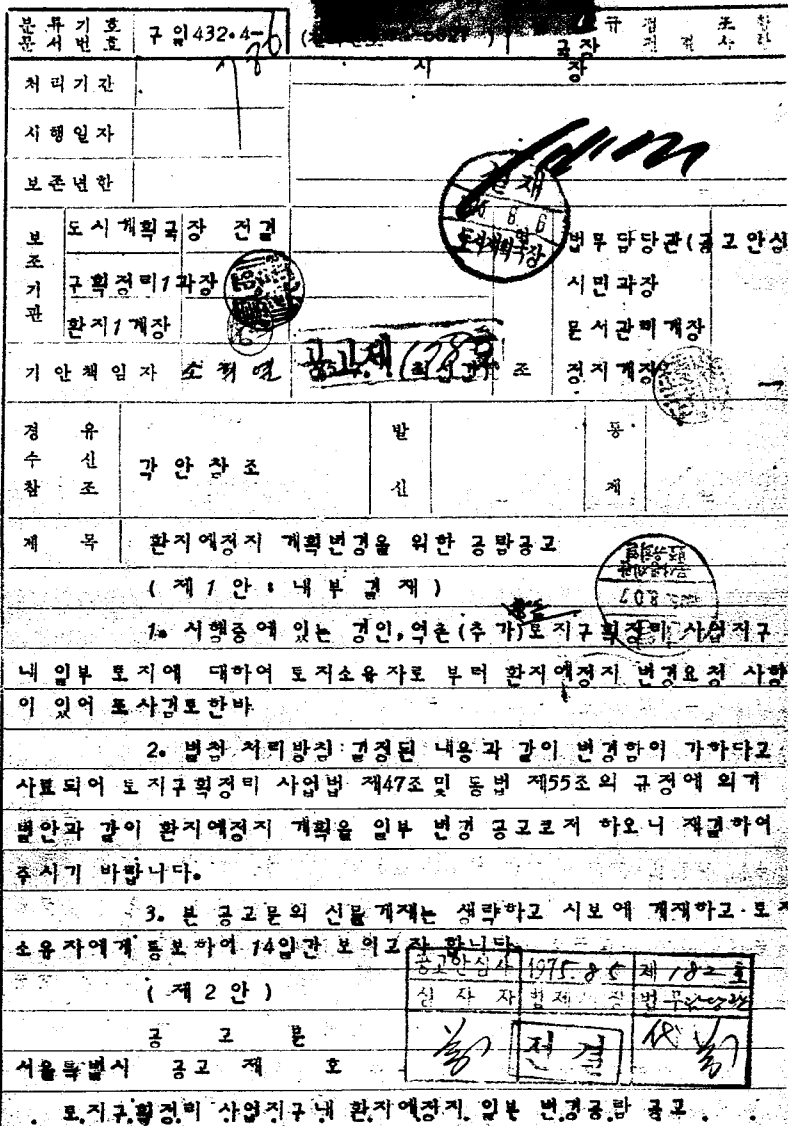 분류기호 문서번호 구일 432.4- 규정 조항
국장 전결사항
처리기간
시행일자
보존년한
보조기관 도시계획국장 전결 법무담당관(공고안심
구획정리1과장 시민과장
환지1계장 문서관리계장
기안책임자 조 정지계장
경유 수신 참조 각안참조 발신 통제
제목 환지예정지 계획변경을 위한 공람공고
(제1안: 내부결재)
1. 시행중에 있는 경인,역촌(추가)토지구획정리 사업지구
내 일부 토지에 대하여 토지소유자로 부터 환지예정지 변경요청 사항
이 있어 조사검토한바
2. 별첨 처리방침 결정된 내용과 같이 변경함이 가하다고
사료되어 토지구획정리 사업법 제47조 및 동법 제55조의 규정에 의거
별안과 같이 환지예정지 계획을 일부 변경 공고코저 하오니 재결하여
주시기 바랍니다.
3. 본 공고문의 신문게재는 생략하고 시보에 게재하고 토지
소유자에게 통보하여 14일간 보이고자 합니다
공고안심사 1975.8.5 제182호
심사자 법제 장 법무담당관
전결 代
(제2안)
공고문
서울특별시 공고 제 호
토지구획정리 사업지구내 환지예정지 일부 변경공람 공고